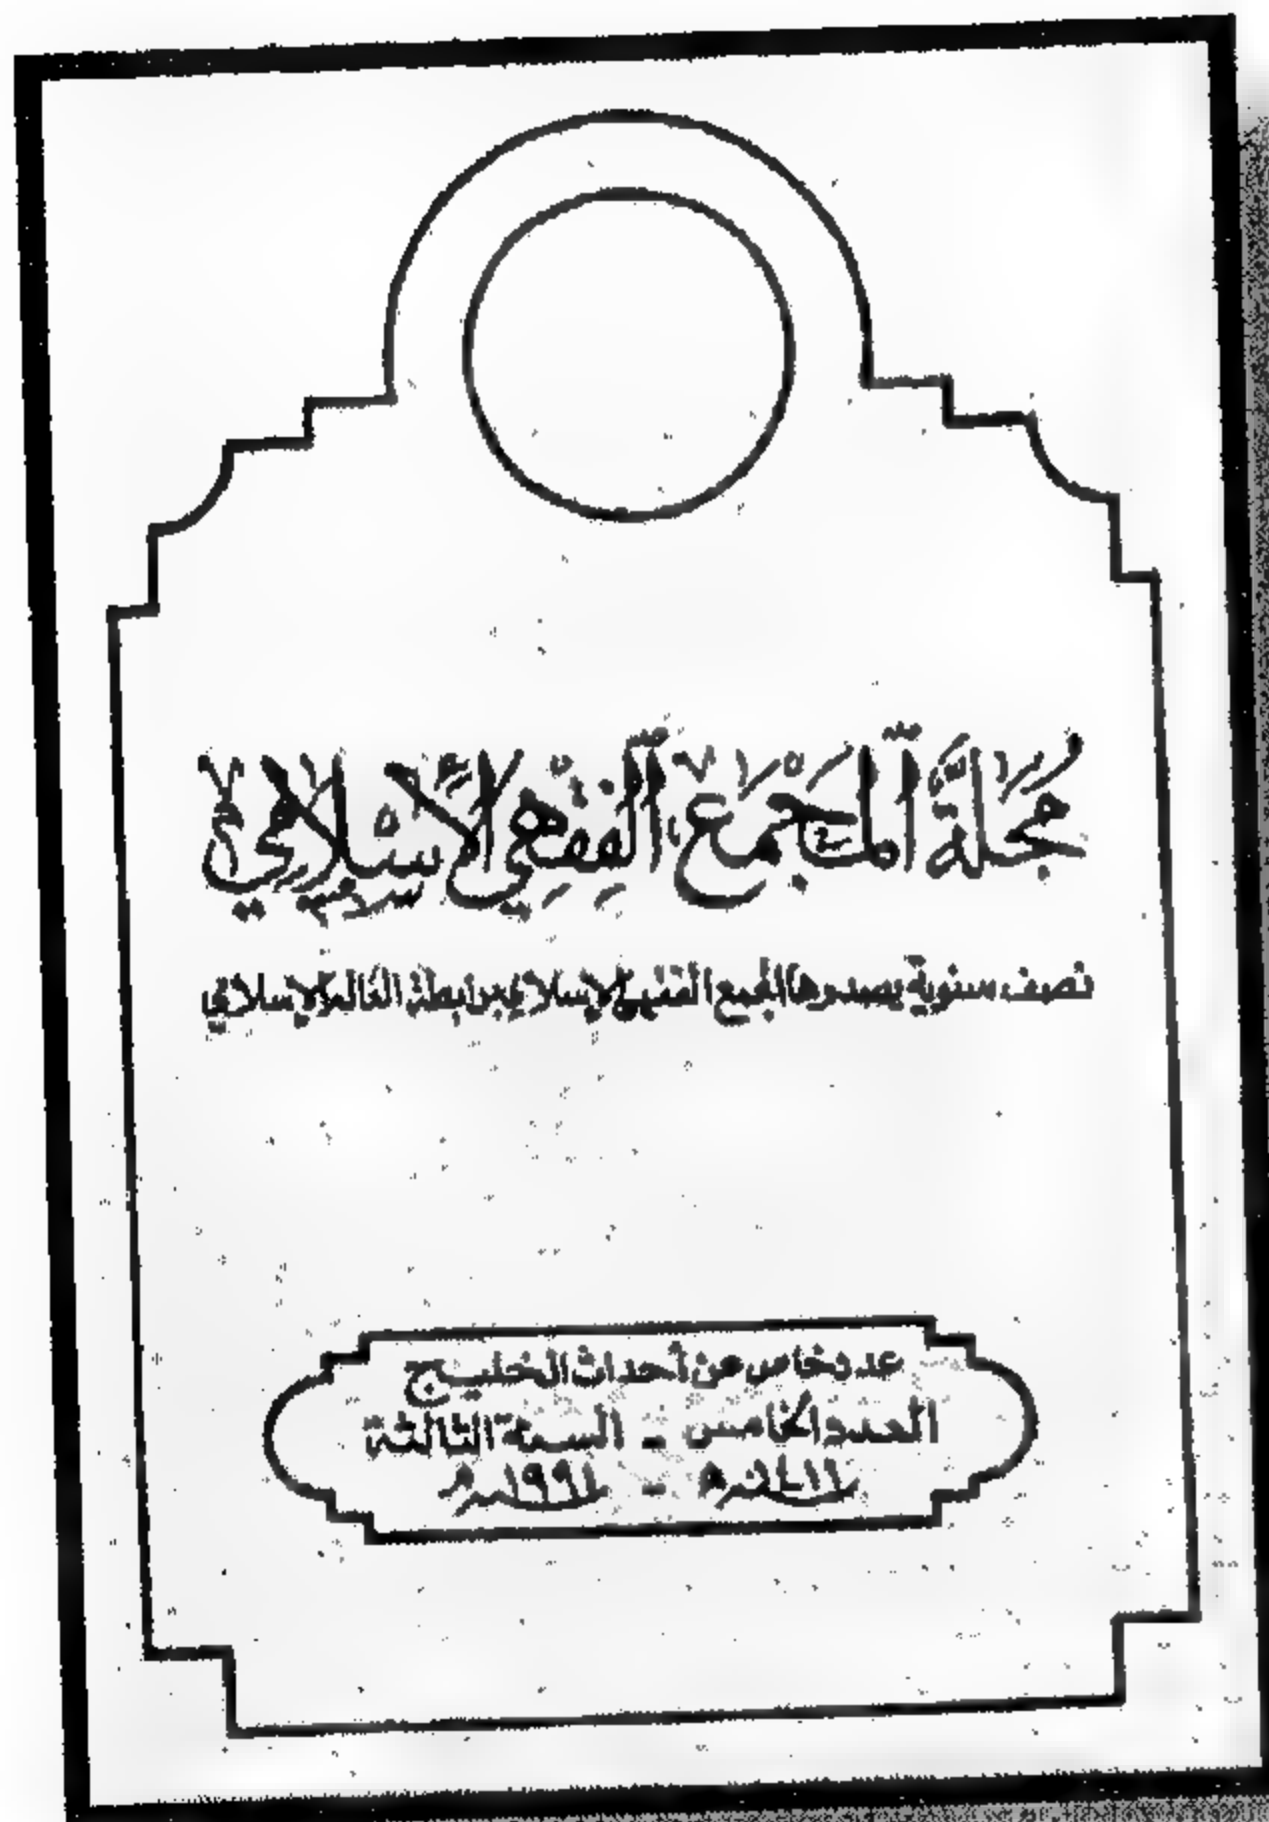 مَجَلَّةُ ٱلْمَجْمَعِ ٱلْفِقْهِي الْإِسْلَامِي
نصف سنوية يصدرها المجمع الفقهي الإسلامي برابطة العالم الإسلامي
عدد خاص عن أحداث الخليج
العدد الخامس - السنة الثالثة
١٤١١هـ - ١٩٩١م